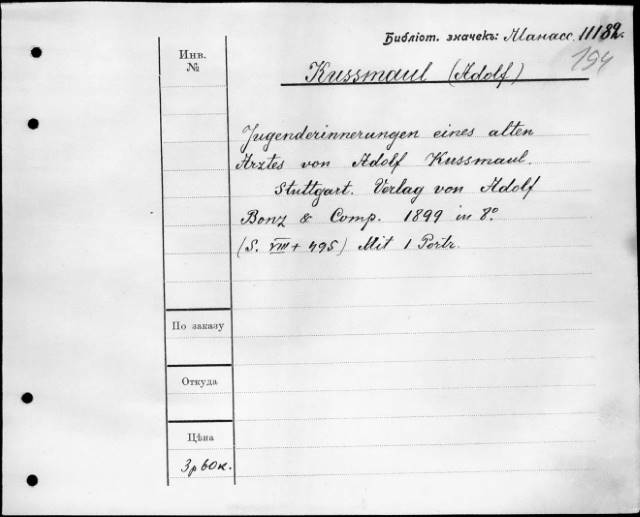 Библіот. значекъ: Манасс. 11182.
194
Инв.
№
Kussmaul (Adolf)
Jugenderinnerungen eines alten
Arztes von Adolf Kussmaul.
Stuttgart. Verlag von Adolf
Bonz & Comp. 1899 in 8º
(S. VIII + 495) Mit 1 Portr.
По заказу
Откуда
Цѣна
3 р 60 к.